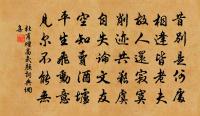 昔別是何處
相逢皆老夫
故人還寂寞
削迹共艱虞
自失論文友
空知賣酒壚
平生飛動意
見爾不能無
杜甫贈高式顏詩